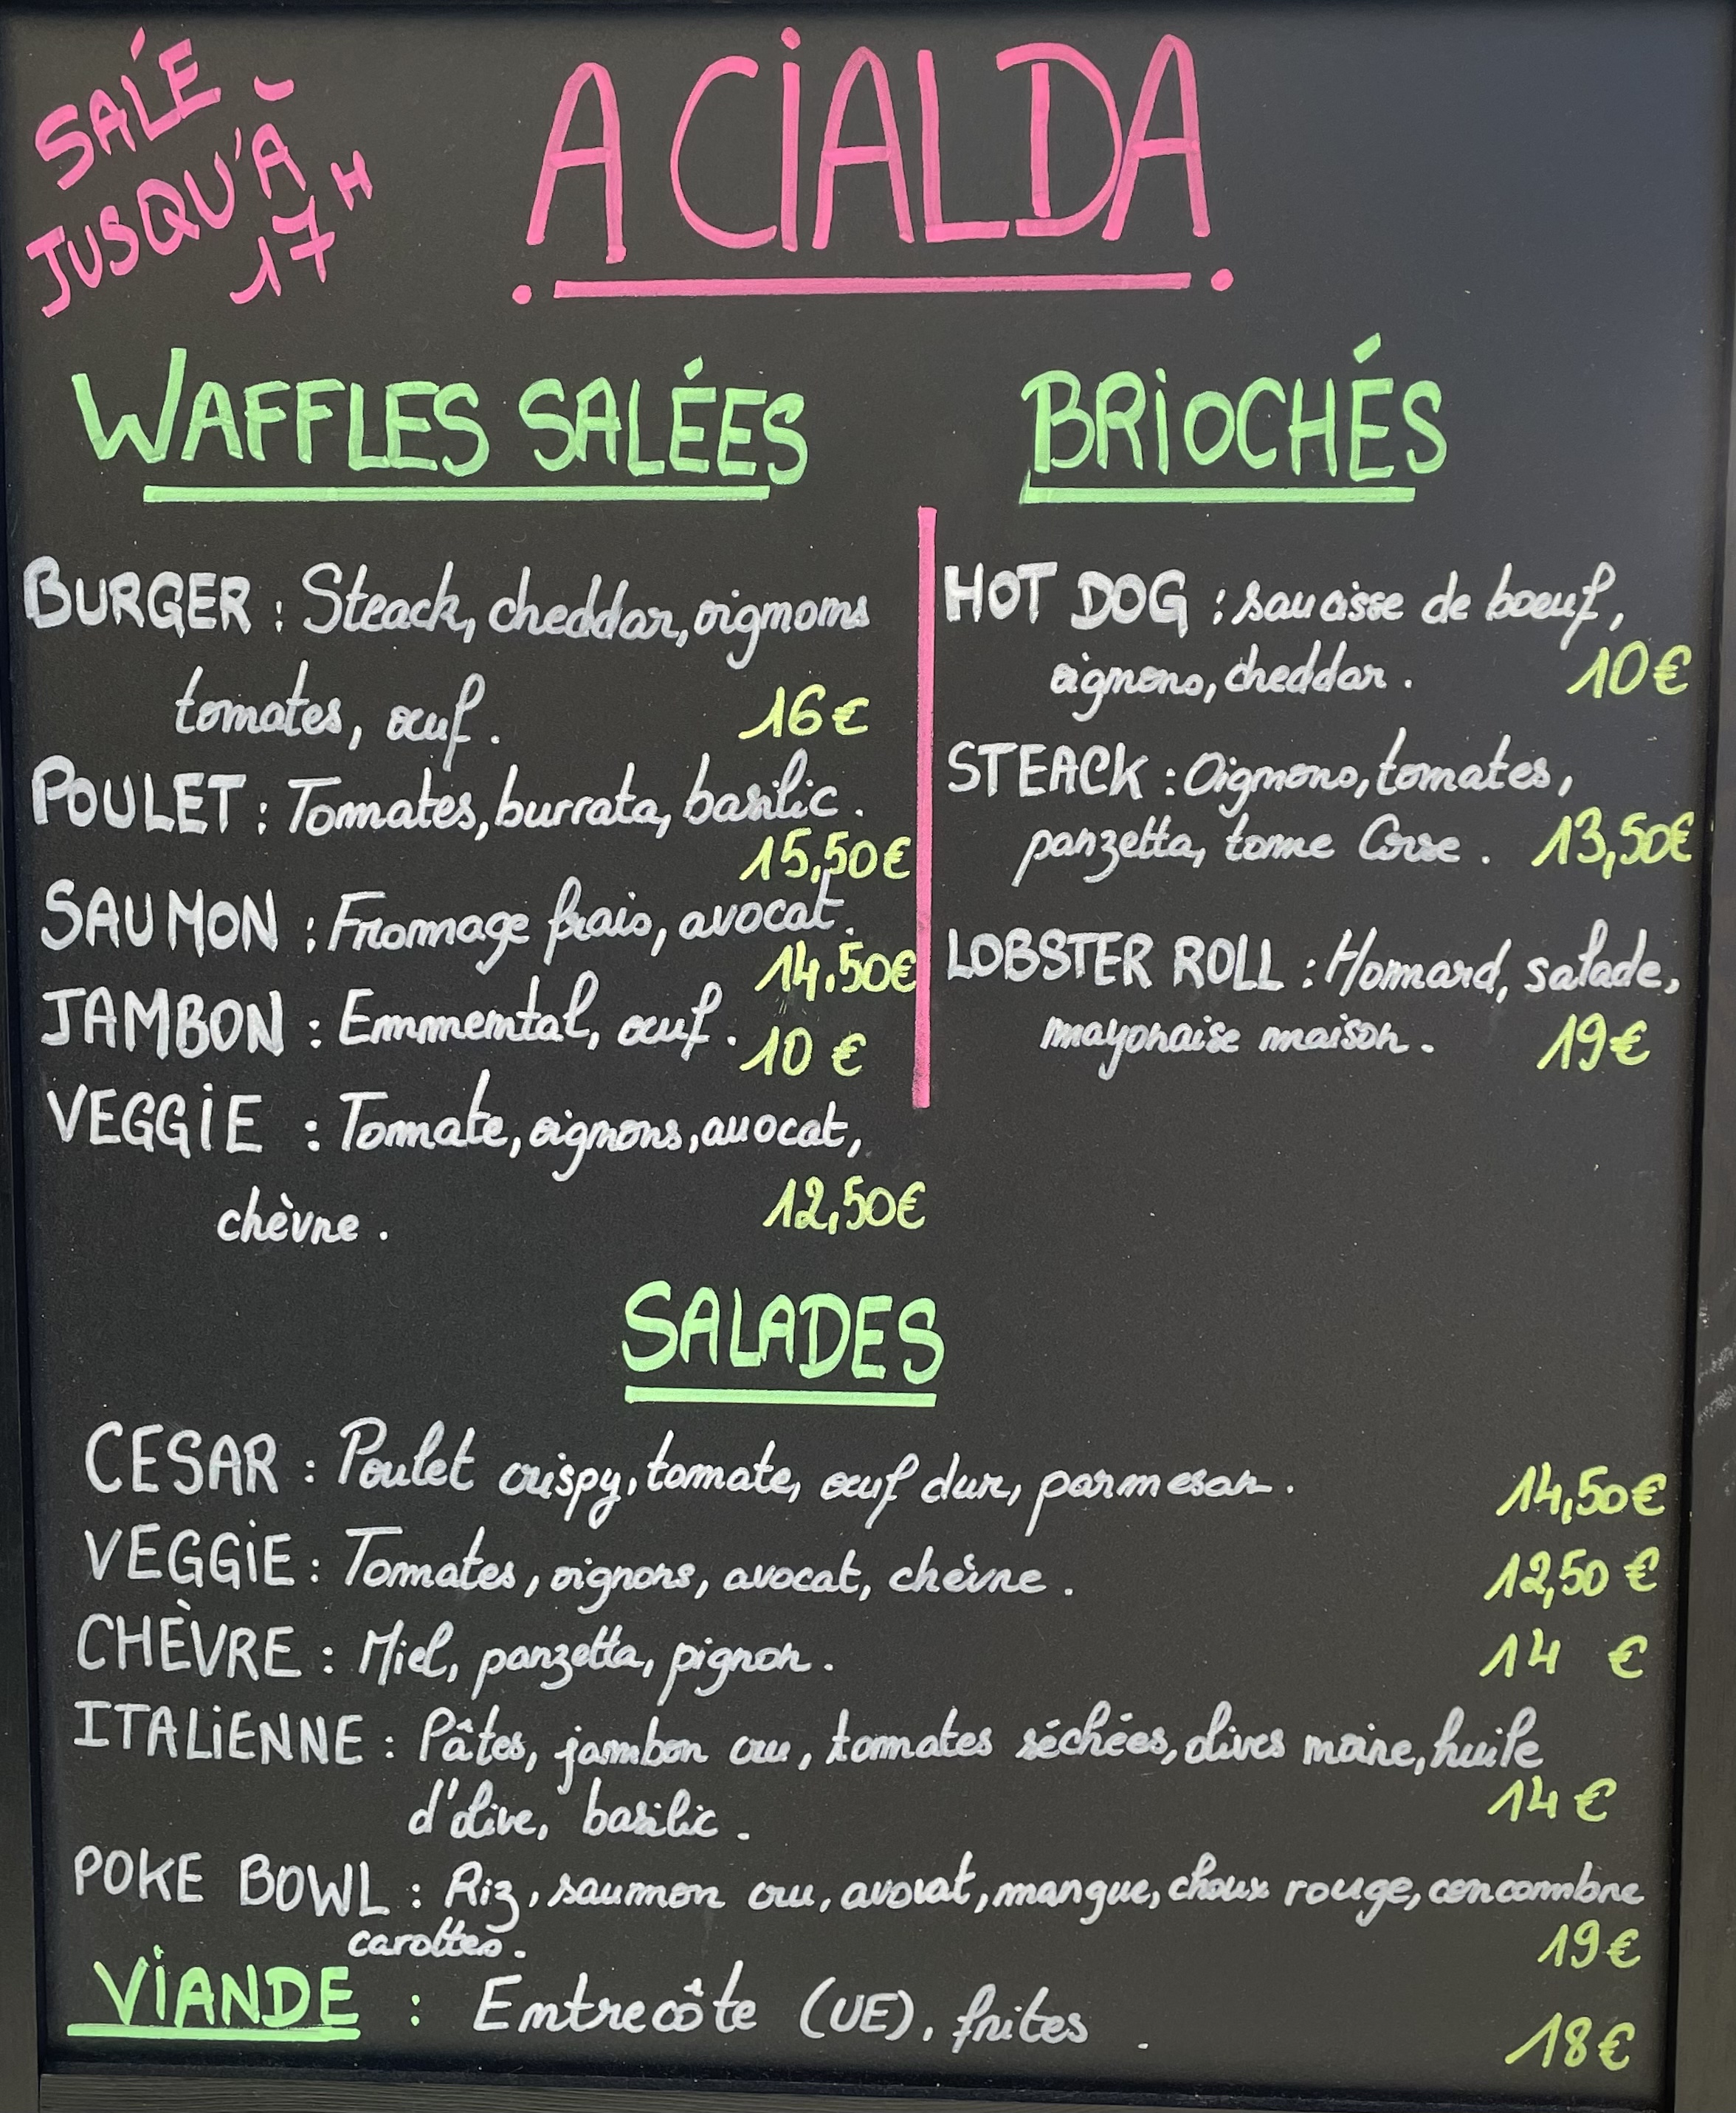 SALÉ
JUSQU'À
17H
A CIALDA
WAFFLES SALÉES
BURGER : Steack, cheddar, oignons
tomates, œuf. 16€
POULET : Tomates, burrata, basilic.
15,50€
SAUMON : Fromage frais, avocat.
14.50€
JAMBON : Emmental, œuf. 10 €
VEGGIE : Tomate, oignons, avocat,
chèvre. 12,50€
BRIOCHÉS
HOT DOG : saucisse de boeuf,
oignons, cheddar. 10€
STEACK : Oignons, tomates,
panzetta, tome Corse. 13,50€
LOBSTER ROLL : Homard, salade,
mayonaise maison. 19€
SALADES
CESAR : Poulet crispy, tomate, œuf dur, parmesan. 14,50€
VEGGIE : Tomates, oignons, avocat, chèvre. 12,50 €
CHÈVRE : Miel, panzetta, pignon. 14 €
ITALIENNE : Pâtes, jambon cru, tomates séchées, olives noire, huile
d'olive, basilic. 14€
POKE BOWL : Riz, saumon cru, avocat, mangue, choux rouge, concombre
carottes. 19€
VIANDE : Entrecôte (UE), frites. 18€